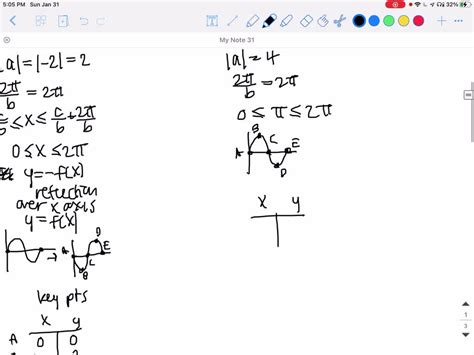 5:05 PM Sun Jan 31
32%
My Note 31
|a| = |-2| = 2
2π/b = 2π
c/b ≤ x ≤ c/b + 2π/b
0 ≤ x ≤ 2π
y = -f(x)
reflection
over x axis
y = f(x)
A B C D E
key pts
x y
A 0 0
|a| = 4
2π/b = 2π
0 ≤ π ≤ 2π
A B C D E
x y
1
3